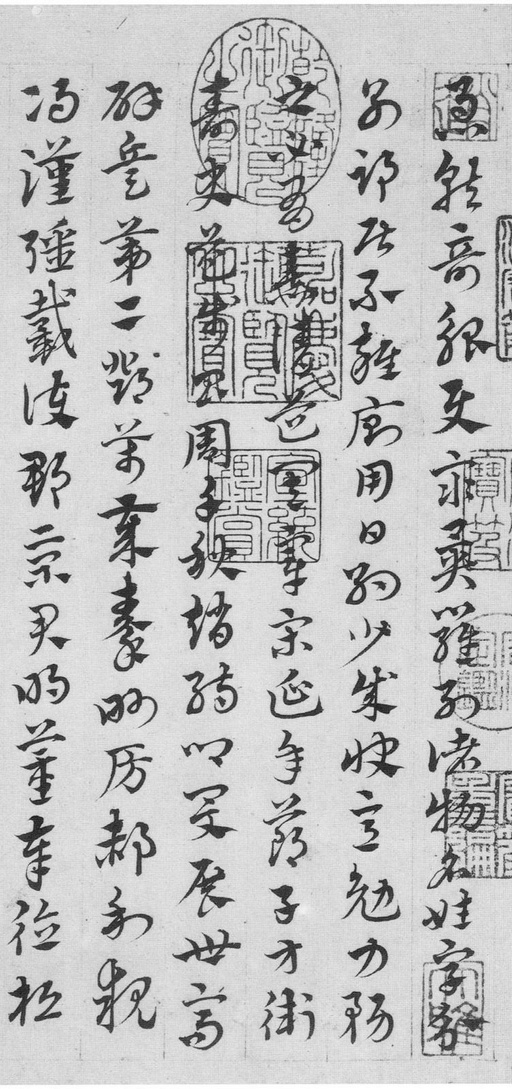 急就奇觚與眾異羅列諸物名姓字分
別部居不雜廁用日約少誠快意勉力務
之必有憙請道其章宋延年鄭子方衛
壽史步昌周千秋趙孺卿爰展世高
辟兵第二鄧萬歲秦眇房郝利親
馮漢彊戴護郡景君明董奉德桓